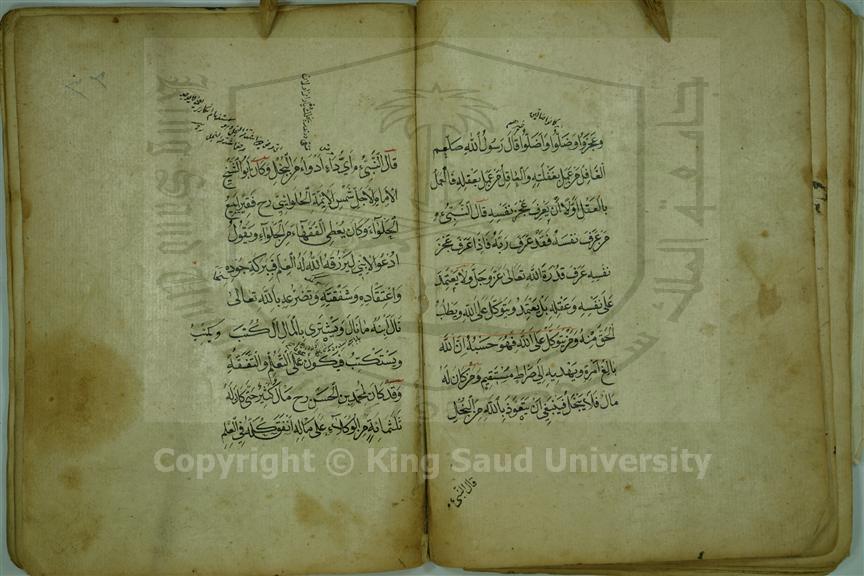 وعجزوا وضلوا واضلوا قال رسول الله صلعم
الغافل من عمل بغفلته والعاقل من عمل بعقله فالعمل
بالعقل اولا ان يعرف عجز نفسه قال النبي ء
من عرف نفسه فقد عرف ربه فاذا عرف عجز
نفسه عرف قدرة الله تعالى عز وجل ولا يعتمد
على نفسه وعقله بل يعتمد ويتوكل على الله ويطلب
الحق منه ومن يتوكل على الله فهو حسبه ان الله
بالغ امره ويهديه الى صراط مستقيم ومن كان له
مال فلا يبخل فينبغي ان يتعوذ بالله من البخل
قال النبي ء
قال النبي ء واي داء ادواء من البخل وكان ابو الشيخ
الامام الاجل شمس الايمة الحلوايني رح فقيرا يبيع
الحلواء وكان يعطي الفقهاء من الحلواء ويقول
ادعوا لابني ليرزقه الله له العلم فببركة جوده
واعتقاده وشفقته وتضرعه بالله تعالى
نال ابنه ما نال ويشترى بالمال الكتب ويكتب
ويستكتب فيكون على التعلم والتفقه
وقد كان لمحمد بن الحسن رح مال كثير حتى كان له
ثلثمائة من الوكلاء على ماله انفق كله في العلم
Copyright © King Saud University